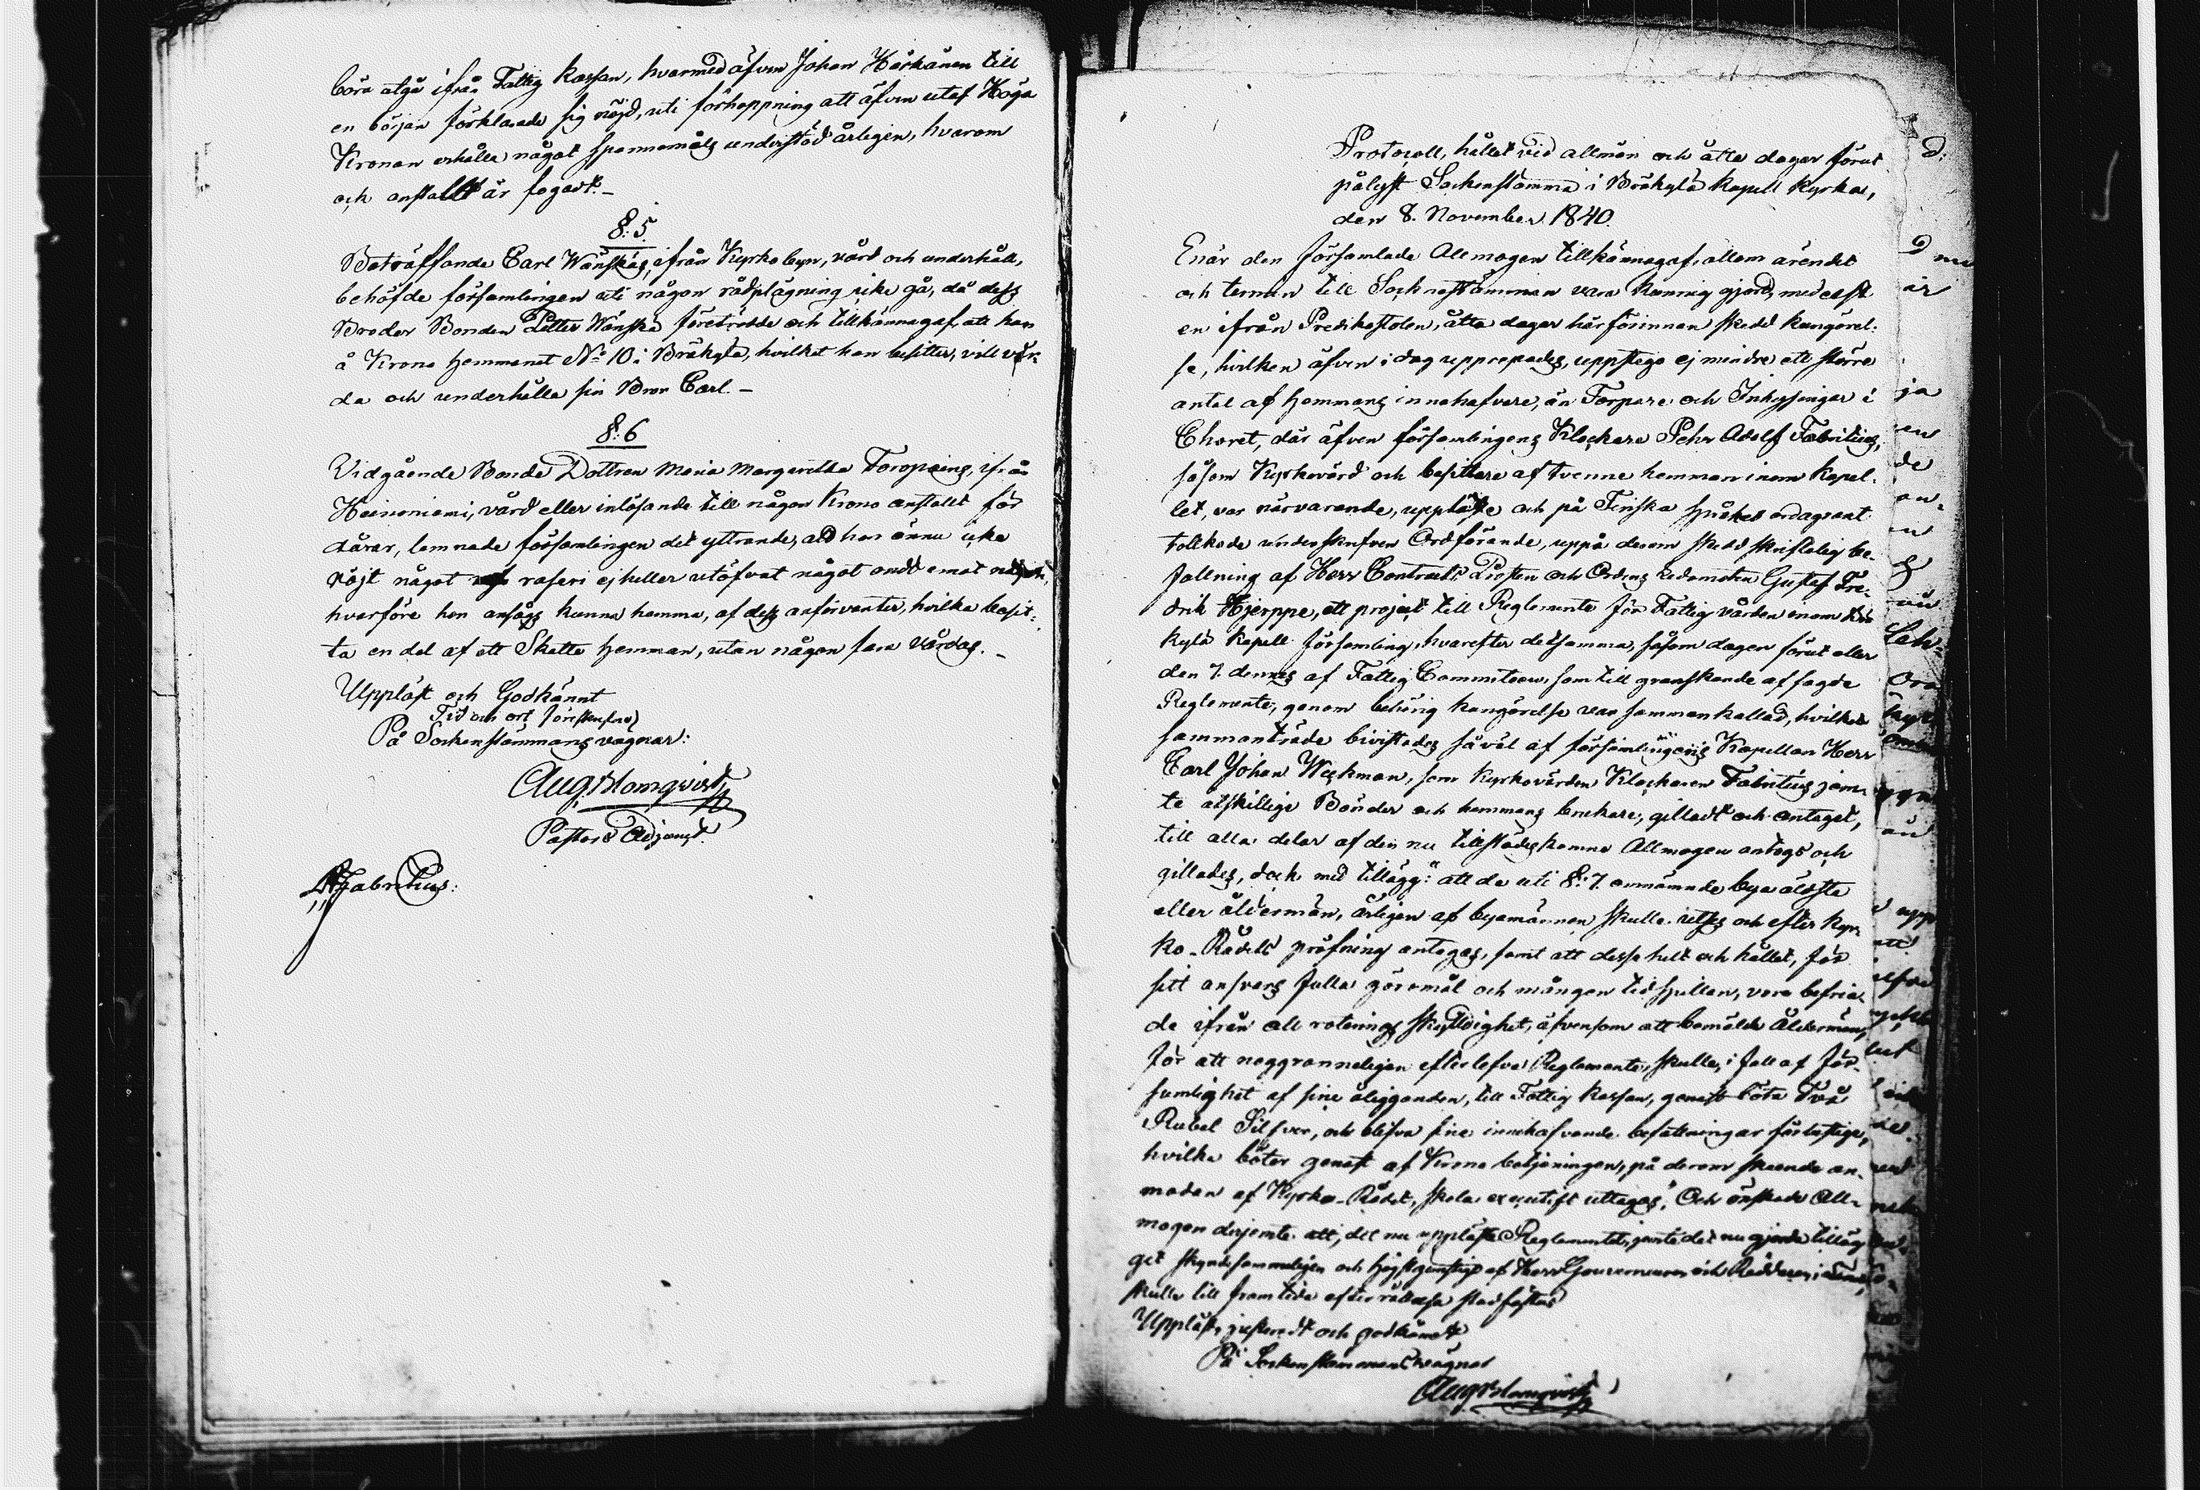 böra utgå ifrån Fattig Kassan, hvarmed äfven Johan Härkänen till
en början förklarade sig nöjd, uti förhoppning att äfven utaf Höga
Kronan erhålla något spannemåls understöd årligen, hvarom
och anstallt är fogadt. –
§: 5
Beträffande Carl Wänskäs, ifrån Kyrkobyn, vård och underhåll,
behöfde församlingen uti någon rådplägning icke gå, då dess
Broder Bonden Petter Wänskä företrädde och tillkännagaf, att han
å Krono hemmanet No 10 i Bräkylä, hvilket han besitter, vill vår-
da och underhålla sin Bror Carl. –
§: 6
Vidgående Bonde Dottren Maria Margaretha Toropains, ifrån
Heinoniemi, vård eller inlösande till någon Krono anstallt för
dårar, lemnade församlingen det yttrande, att hon ännu icke
röjt något raseri ej heller utöfvat något ondt emot någon,
hvarföre hon ansågs kunna hemma, af dess anförvanter, hvilka besit-
ta en del af ett Skatte hemman, utan någon fara vårdas. –
Uppläst och Godkännt
Tid och ort förestår
På Sockenstämmans vägnar:
Aug Blomqvist
Pastors Adjunct.
Fabritius:
Protocoll, hållet vid allmän och åtta dagar förut
pålyst Sockenstämma i Bräkylä Kapell Kyrka,
den 8. November 1840.
Enär den församlade Allmogen tillkännagaf, allom ärendet
och termin till Socknestämman vara kunnig gjord, medelst
en ifrån Predikostolen, åtta dagar härförinnan skedd kungörel-
se, hvilken äfven i dag upprepades, uppstego ej mindre ett större
antal af hemmans innehafvare, än Torpare och Inhysingar i
Choret, där äfven församlingens Klockare Pehr Adolf Fabritius,
såsom Kyrkovärd och besittare af tvenne hemman inom Kapel-
let, var närvarande, uppläste och på Finska språket ordagrant
tolkade underskrifven Ordförande, uppå derom skedd skriftelig be-
fallning af Herr Contracts Prosten och Ordens Ledamoten Gustaf Fre-
drik Hjerppe, ett project till Reglemente för Fattig vården inom Brä-
kylä Kapell församling, hvarefter detsamma, såsom dagen förut eller
den 7. dennes af Fattig Committeen, som till granskande af sagde
Reglemente, genom behörig kungörelse var sammankallad, hvilket
sammanträde bivistades såväl af församlingens Kapellan Herr
Carl Johan Weckman, som Kyrkovärden Klockaren Fabritius jem-
te åtskillige Bönder och hemmans brukare, gilladt och antaget,
till alla delar af den nu tillstädeskomne Allmogen antogs och
gillades, dock med tillägg: "att de uti §: 7. omnämnde bya äldste
eller åldermän, årligen af byamännen skulle utses och efter Kyr-
ko-Rådets pröfning antagas, samt att desse helt och hållet, för
sitt ansvars fulla göromål och mången tidspillan, vore befria-
de ifrån all roterings skyldighet, äfvensom att bemälde Åldermän,
för att noggranneligen efterlefva Reglementet, skulle, i fall af för-
sumlighet af sine åligganden, till Fattig Kassan, genast böta Två
Rubel Silfver, och blifva sine innehafvande befattningar förlustige,
hvilka böter genast af Krono betjeningen, på derom skeende an-
modan af Kyrko-Rådet, skola executift uttagas." Och önskade All-
mogen desjemte att, det nu uppläste Reglementet, jemte det nu gjorda tillägg
get skyndsammeligen och högstgunstigt af Herr Gouverneuren och Riddaren i
skulle till framtida efterrättelse stadfästas
Uppläst, justeradt och godkändt
På Sockenstämmans vägnar
Aug Blomqvist